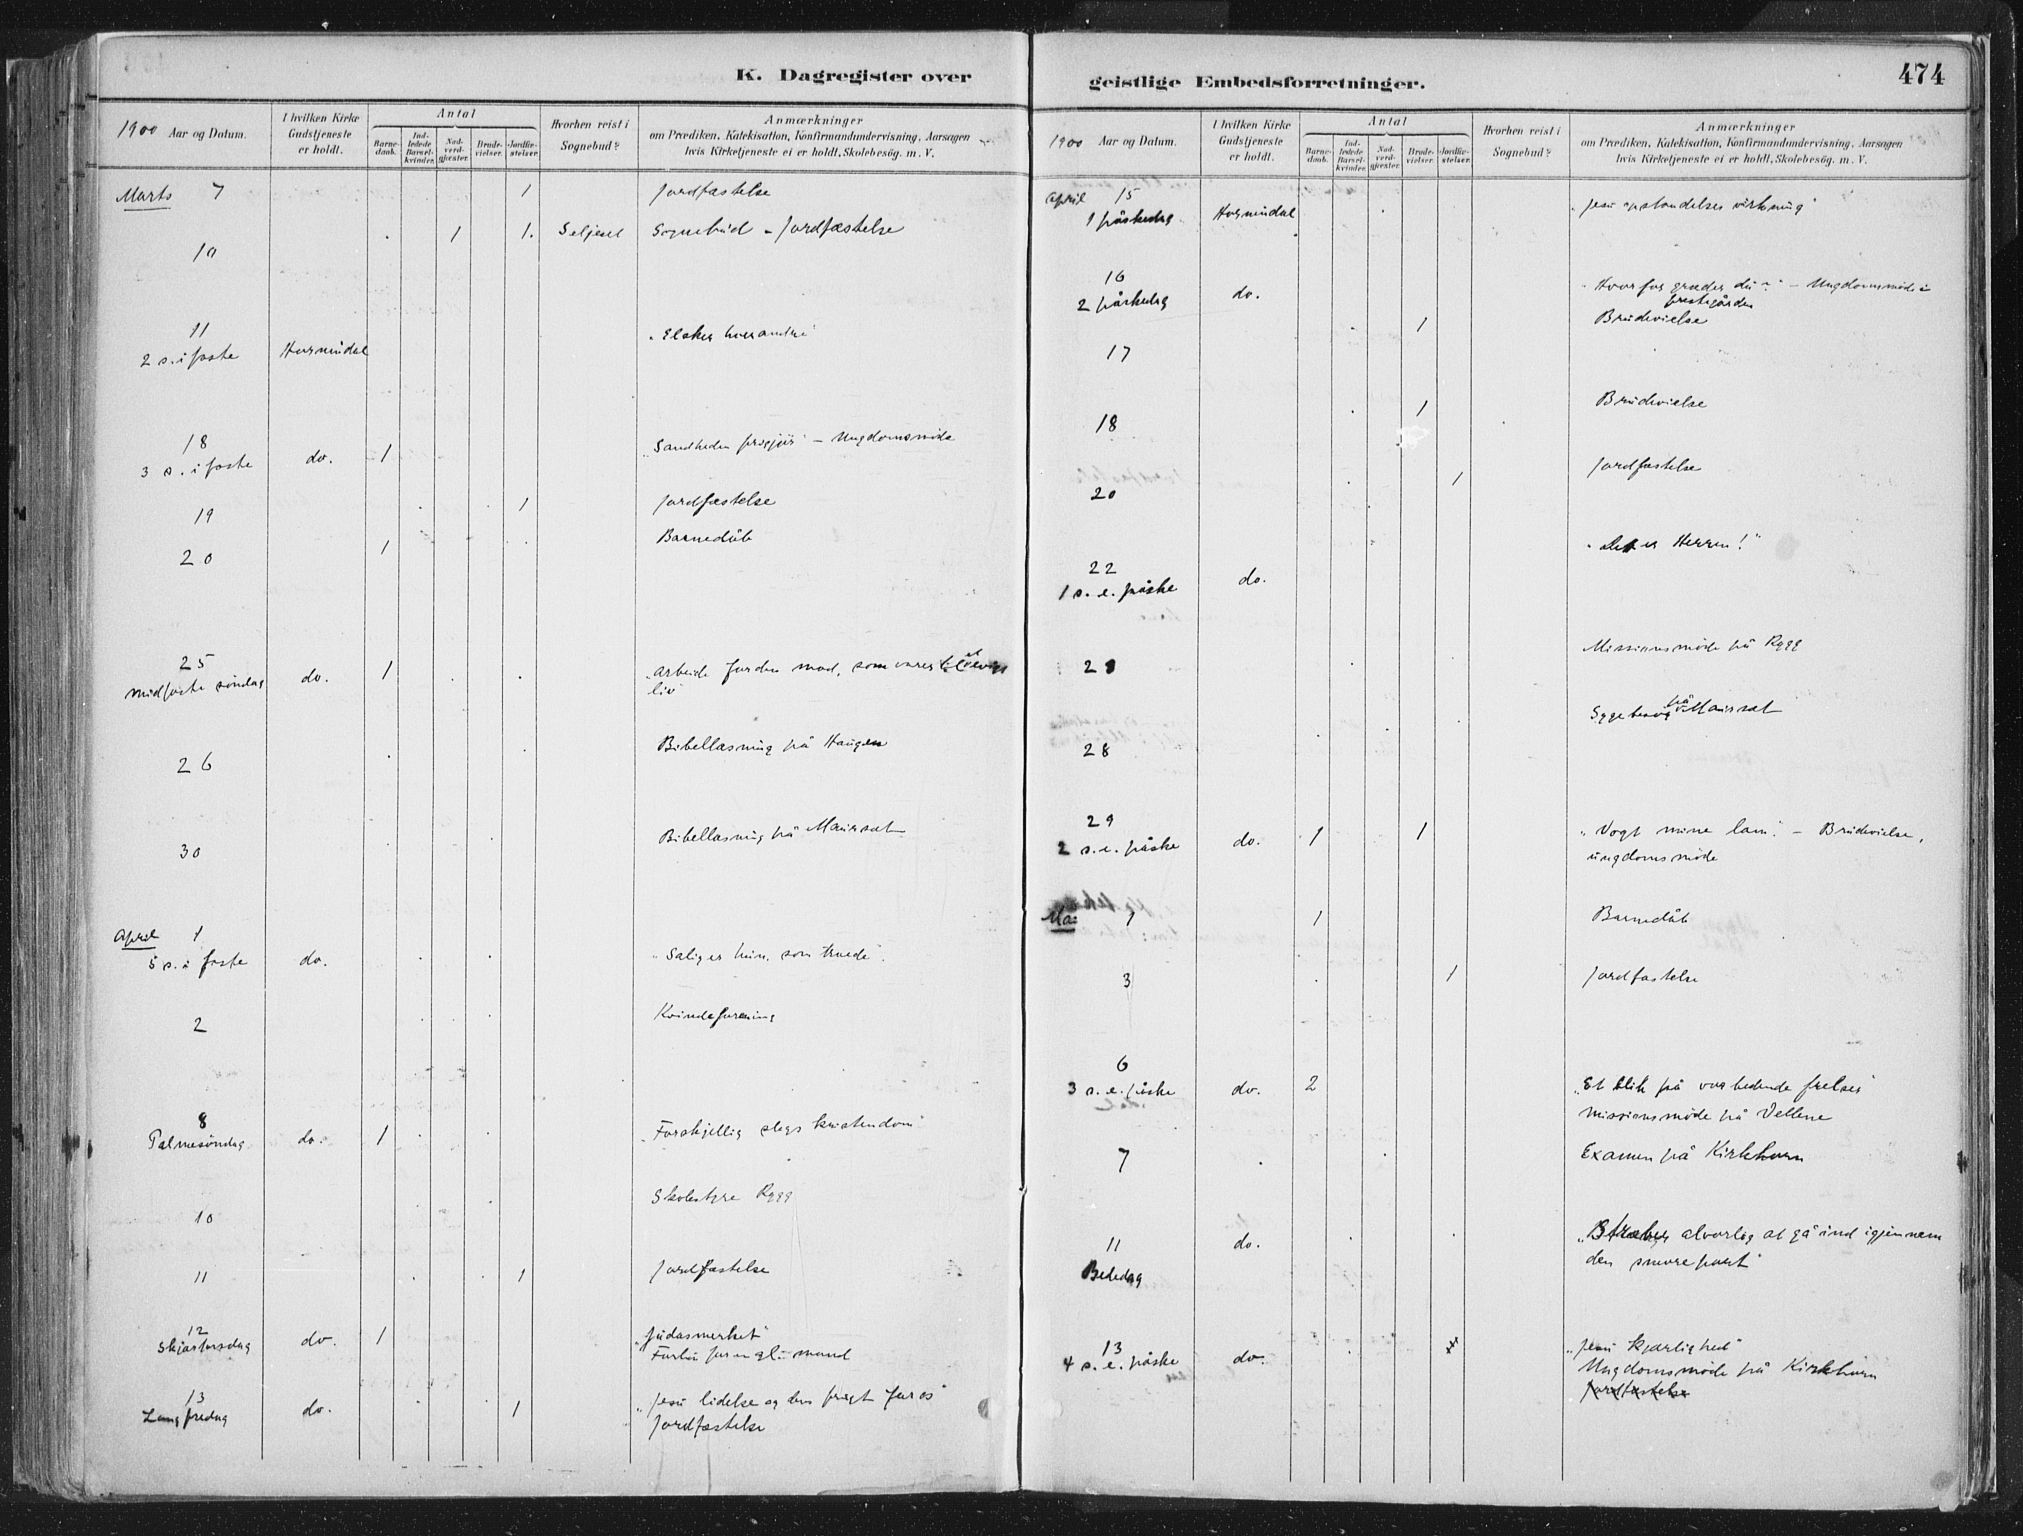 K. Dagregister over
1900 Aar og Datum.
I hvilken Kirke Gudstjeneste er holdt.
Antal
Barnedaab.
Indledede Barselkvinder.
Nadverdgjæster.
Brudevielser.
Jordfæstelser.
Hvorhen reist i Sognebud?
Anmærkninger
om Prædiken, Katekisation, Konfirmandundervisning, Aarsagen
hvis Kirketjeneste ei er holdt, Skolebesøg. m. V.
Marts 7 1 Jordfæstelse
10 1 1. Seljeset Sognebud - Jordfæstelse
11
2 s. i faste Hornindal "Elsker hverandre"
18
3 s. i faste do. 1 "Sandheden frigjør" - Ungdomsmøde
19 1 Jordfæstelse
20 1 Barnedåb
25
midfaste søndag do. 1 "Arbeide for den mad, som varer
liv"
26 Bibellæsning på Haugen
30 Bibellæsning på Maurset
April 1
5 s. i faste do. "Salig er hun, som troede".
2 Kvindeforening
8
Palmesøndag do. 1 "Forskjellig slags kristendom"
10 Skolestyre Rygg
11 1 Jordfæstelse
12
Skjærtorsdag do. 1 "Judasmerket"
13
Langfredag do. 1 "Jesu lidelse og dens frugt for os"
Jordfæstelse
geistlige Embedsforretninger.
474
1900 Aar og Datum.
I hvilken Kirke Gudstjeneste er holdt.
Antal
Barnedaab.
Indledede Barselkvinder.
Nadverdgjæster.
Brudevielser.
Jordfæstelser.
Hvorhen reist i Sognebud?
Anmærkninger
om Prædiken, Katekisation, Konfirmandundervisning, Aarsagen
hvis Kirketjeneste ei er holdt, Skolebesøg. m. V.
April 15
1 påskedag Hornindal "Jesu opstandelses virkning"
16
2 påskedag do. "Hvorfor græder du?" - Ungdomsmøde i
prestegården
17 1 Brudevielse
18 1 Brudevielse
20 1 Jordfæstelse
22
1 s. e. påske do. "Det er Herren!"
Missionsmøde på Rygg
28 Sygebesøg på Maurset
29
2 s. e. påske do. 1 1 "Vogt mine lam". - Brudevielse,
ungdomsmøde
Mai 1 1 Barnedåb
3 1 Jordfæstelse
6
3 s. e. påske do. 2 "Et blik på vor bedende frelser"
Missionsmøde på Vellene
7 Examen på Kirkhorn
11
Bededag do. "Stræber alvorlig at gå ind igjennem
den snevre port"
13
4 s. e. påske do. "Jesu kjærlighed"
Ungdomsmøde på Kirkhorn
Jordfæstelse